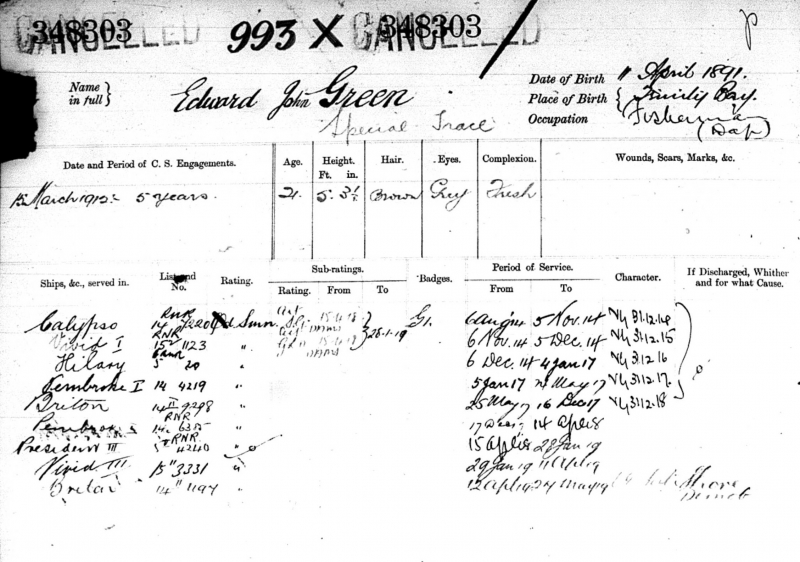 348303 CANCELLED 993 X 348303 CANCELLED P
Name in full } Edward John Green
Date of Birth 11 April 1891.
Place of Birth { Trinity Bay.
Occupation Fisherman
Special Trace
Date and Period of C. S. Engagements. Age. Height. Ft. in. Hair. Eyes. Complexion. Wounds, Scars, Marks, &c.
15 March 1912 5 years. 21. 5. 3½ Brown Grey Fresh
Ships, &c., served in. List and No. Rating. Sub-ratings. Rating. From To Badges. Period of Service. From To Character. If Discharged, Whither and for what Cause.
Calypso RNR 14 Smn. 28-1-19 G1. 6 Aug 14 5 Nov. 14 VG 31.12.14
Vivid I RNR 15 1123 " 6 Nov. 14 5 Dec. 14 VG 31.12.15
Hilary 5 20 " 6 Dec. 14 4 Jan 17 VG 31.12.16
Pembroke I 14 4219 " 5 Jan 17 24 May 17 VG 31.12.17.
Briton 14 9298 " 25 May 17 16 Dec 17 VG 31.12.18
Pembroke RNR 14 " 17 Dec 17 14 Apl 18
President III RNR 5 4240 " 15 Apl 18 28 Jan 19
Vivid III 15 3331 " 29 Jan 19 11 Apl 19
Briton 14 1197 " 12 Apl 19 24 May 19 Shore Demob